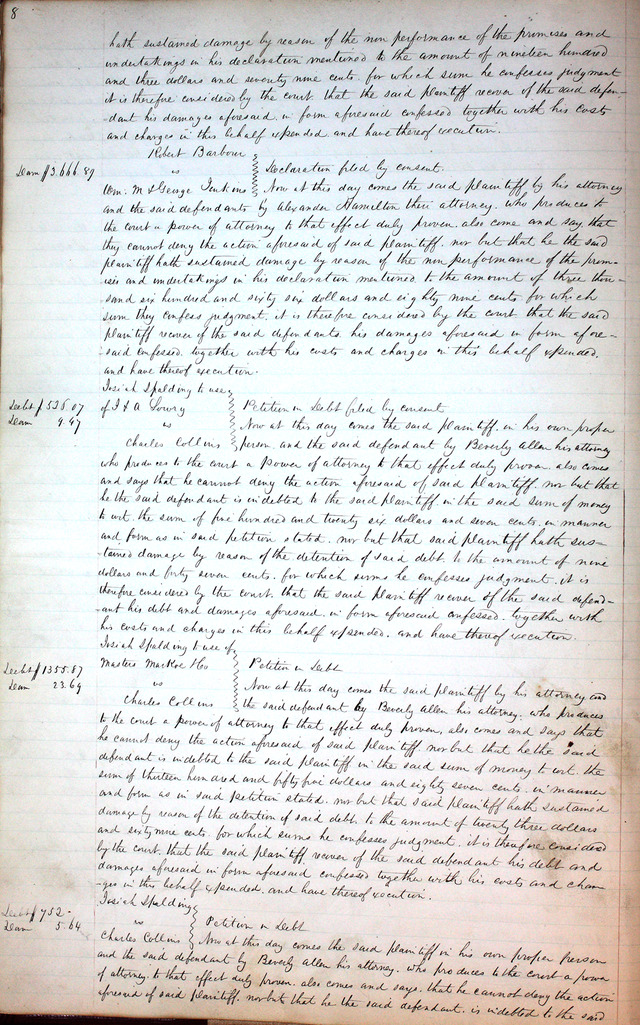 8
hath sustained damage by reason of the non performance of the promises and
undertakings in his declaration mentioned to the amount of nineteen hundred
and three dollars and seventy nine cents. for which sum he confesses judgment
it is therefore considered by the court. that the said plaintiff recover of the said defen-
dant his damages aforesaid. in form aforesaid confessed together with his costs
and charges in this behalf expended. and have thereof execution.
Robert Barbour
Dam $3.666.89
vs Declaration filed by consent.
Wm. M & George Jenkins Now at this day comes the said plaintiff by his attorney
and the said defendants by Alexander Hamilton their attorney. who produces to
the court a power of attorney to that effect duly proven. also come and say that
they cannot deny the action aforesaid of said plaintiff. nor but that he the said
plaintiff hath sustained damage by reason of the non performance of the prom-
-ises and undertakings in his declaration mentioned to the amount of three thou-
sand six hundred and sixty six dollars and eighty nine cents for which
sum they confess judgment. it is therefore considered by the court that the said
plaintiff recover of the said defendants. his damages aforesaid in form afore-
-said confessed. together with his costs and charges in this behalf expended.
and have thereof execution.
Josiah Spalding to use
Debt $526.07
of J & A Lowry Petition in Debt filed by consent
Dam 9.47
vs Now at this day comes the said plaintiff. in his own proper
Charles Collins person. and the said defendant by Beverly Allen his attorney
who produces to the court a Power of attorney to that effect duly proven. also comes
and says that he cannot deny the action aforesaid of said plaintiff. nor but that
he the said defendant is indebted to the said plaintiff in the said sum of money
to wit. the sum of five hundred and twenty six dollars and seven cents. in manner
and form as in said petition stated. nor but that said plaintiff hath sus-
-tained damage by reason of the detention of said debt. to the amount of nine
dollars and forty seven cents. for which sums he confesses judgment. it is
therefore considered by the court. that the said Plaintiff recover of the said defend-
-ant his debt and damages aforesaid. in form aforesaid confessed. together with
his costs and charges in this behalf expended. and have thereof execution.
Josiah Spalding to use of
Debt $1355.87
Masters Markoe & Co Petition in Debt
Dam 23.69
vs Now at this day comes the said plaintiff by his attorney and
Charles Collins the said defendant by Beverly Allen his attorney. who produces
to the court a power of attorney to that effect duly proven. also comes and says that
he cannot deny the action aforesaid of said plaintiff nor but that he the said
defendant is indebted to the said plaintiff in the said sum of money to wit. the
sum of thirteen hundred and fifty five dollars and eighty seven cents. in manner
and form as in said petition stated. nor but that said plaintiff hath sustained
damage by reason of the detention of said debt. to the amount of twenty three dollars
and sixty nine cents. for which sums he confesses judgment. it is therefore considered
by the court. that the said plaintiff recover of the said defendant his debt and
damages aforesaid in form aforesaid confessed together with his costs and char-
-ges in this behalf expended. and have thereof execution.
Josiah Spalding
Debt $752-
vs Petition in Debt
Dam 5.64
Charles Collins Now at this day comes the said plaintiff in his own proper person
and the said defendant by Beverly Allen his attorney. who produces to the court a power
of attorney. to that effect duly proven. also comes and says. that he cannot deny the action
aforesaid of said plaintiff. nor but that he the said defendant. is indebted to the said